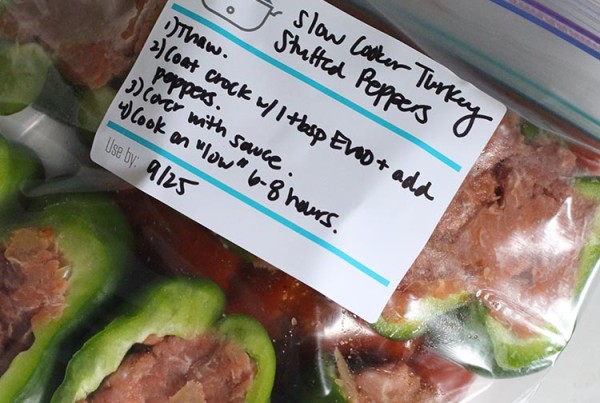 Slow Cooker Turkey
Stuffed Peppers
1) Thaw.
2) Coat crock w/ 1 tbsp EVOO + add
peppers.
3) Cover with sauce.
4) Cook on "low" 6-8 hours.
Use by:
9/25